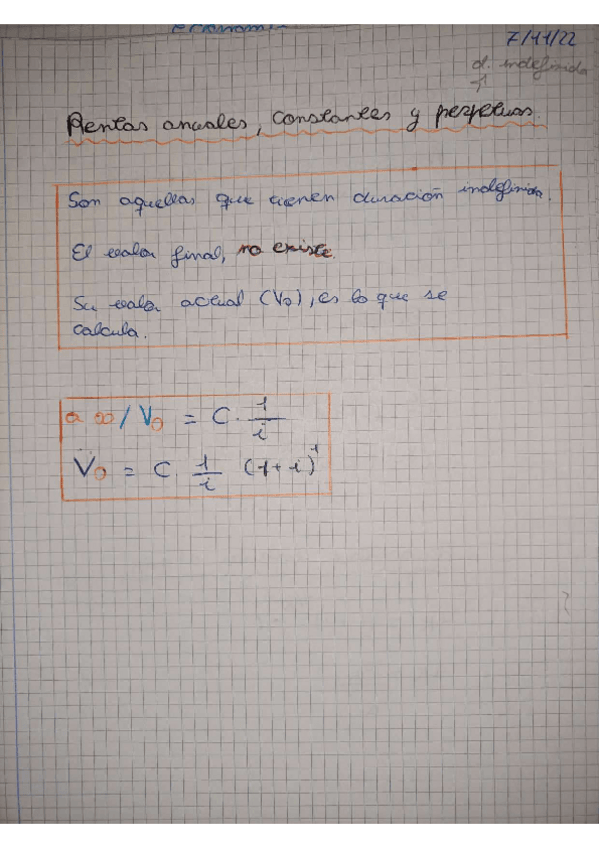 economía
7/11/22
d. indefinida
Rentas anuales, constantes y perpetuas.
Son aquellas que tienen duración indefinida.
El valor final, no existe.
Su valor actual (V0), es lo que se
calcula.
a ∞ / V0 = C · 1/i
V0 = C · 1/i (1+i)^1